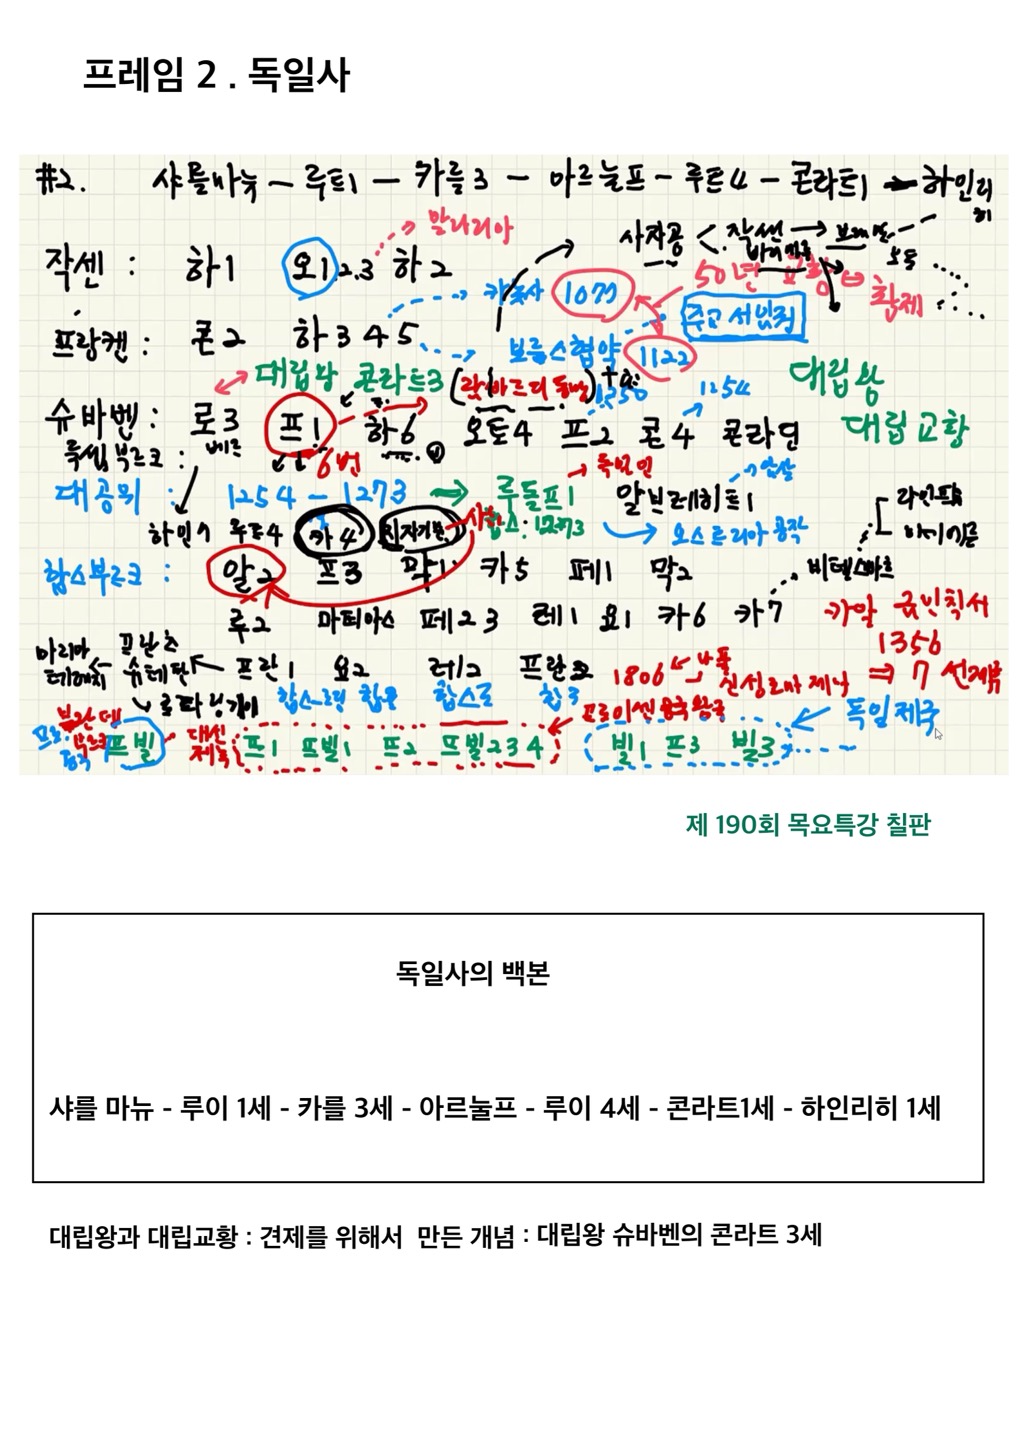 프레임 2 . 독일사
#2. 샤를마뉴 - 루이1 - 카를3 - 아르눌프 - 루이4 - 콘라트1 - 하인리히
말라리아
사자공 < 작센 →
작센 : 하1 오1 2.3 하2
카노사 1077 50년 교황 ⇔ 황제
주교 서임권
프랑켄 : 콘2 하345
보름스협약 1122
대립왕 콘라트3 (랏바르디 동맹) 1250 1254 대립왕
슈바벤 : 로3 프1 하6 오토4 프2 콘4 콘라딘 대립교황
룩셈부르크 : 6번
대공위 : 1254 - 1273 ⇒ 루돌프1 알브레히트1 암살
합스:1273 오스트리아 공작
하인7 루트4 카4
합스부르크 : 알2 프3 막1 카5 페1 막2
루2 마티아스 페23 레1 요1 카6 카7
비텔스바흐
금인칙서
1356
⇒ 7 선제후
마리아 테레지아 프란츠 슈테판 프란1 요2 레2 프란2 1806 신성로마 제국
프로이센 왕국
독일제국
프빌 프1 프빌1 프2 프빌234 빌1 프3 빌3
제 190회 목요특강 칠판
독일사의 백본
샤를 마뉴 - 루이 1세 - 카를 3세 - 아르눌프 - 루이 4세 - 콘라트1세 - 하인리히 1세
대립왕과 대립교황 : 견제를 위해서 만든 개념 : 대립왕 슈바벤의 콘라트 3세